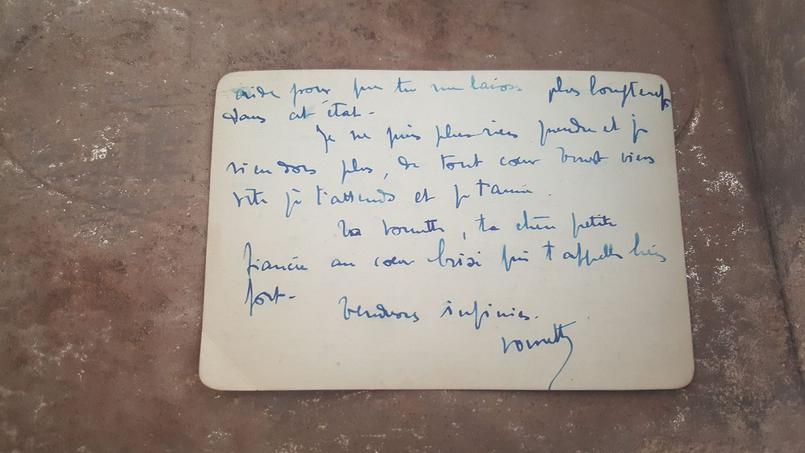 aide pour que tu me laisses plus longtemps
dans cet état -
Je ne puis plus rien prendre et je
n'en dors plus, de tout cœur viens
vite je t'attends et je t'aime.
ta , ta chère petite
fiancée au cœur brisé qui t'appelle bien
fort -
Tendresses infinies.